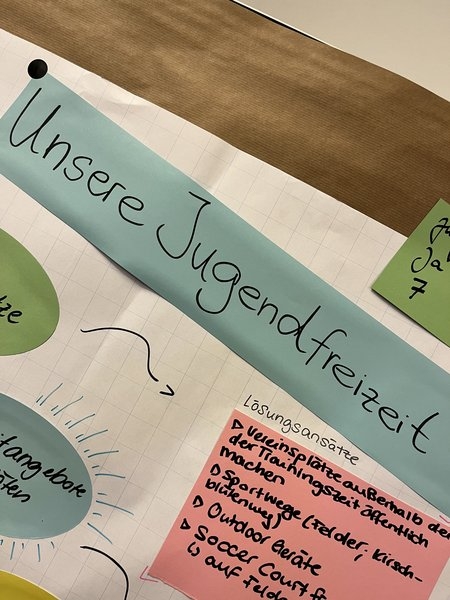 Unsere Jugendfreizeit
Ja
7
Lösungsansätze
▷ Vereinsplätze außerhalb der
der Trainingszeit öffentlich
machen
▷ Sportwege (Felder, Kirsch-
blütenweg)
▷ Outdoor Geräte
▷ Soccer Court
↳ auf